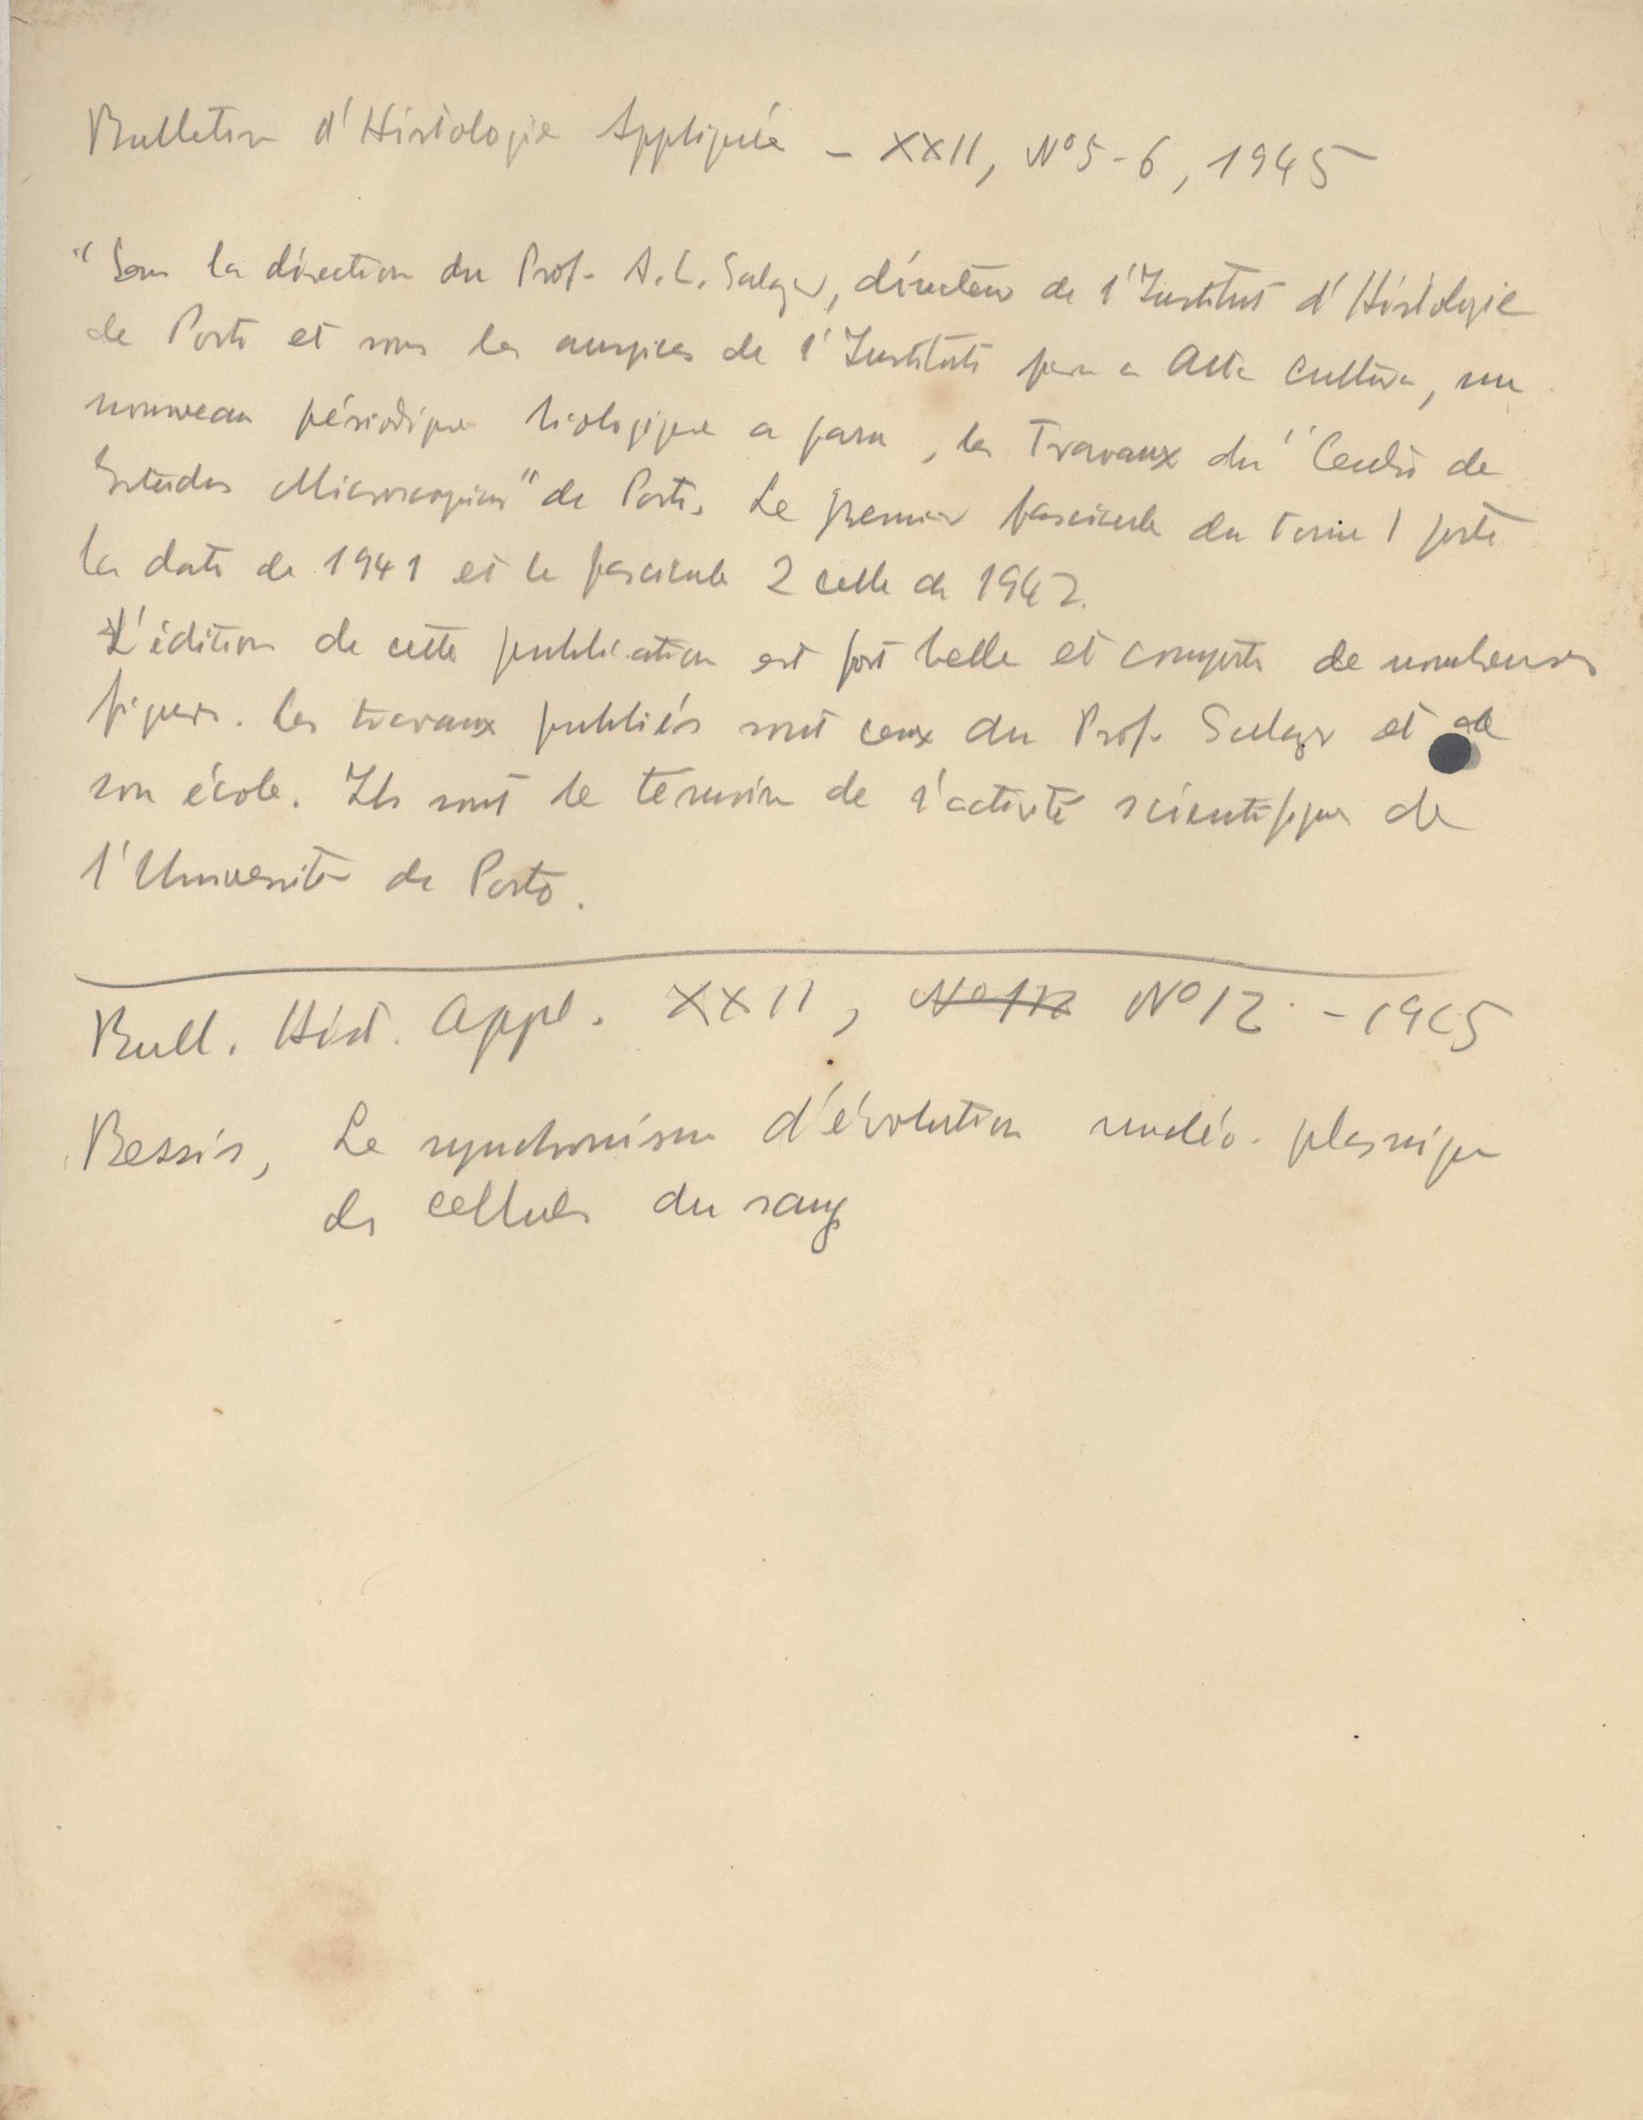 Bulletin d'Histologie Appliquée - XXII, Nº 5-6, 1945
"Sous la direction du Prof. A. L. Salazar, directeur de l'Institut d'Histologie
de Porto et sous les auspices de l'Instituto para a Alta Cultura, un
nouveau périodique biologique a paru, les Travaux du "Centro de
Estudos Microscopicos" de Porto. Le premier fascicule du Tome I porte
la date de 1941 et le fascicule 2 celle de 1942.
L'édition de cette publication est fort belle et comporte de nombreuses
figures. Les travaux publiés sont ceux du Prof. Salazar et de
son école. Ils sont le témoin de l'activité scientifique de
l'Université de Porto.
Bull. Hist. Appl. XXII, Nº 12 - 1945
Bessis, Le synchronisme d'évolution nucléo-plasmique
des cellules du sang